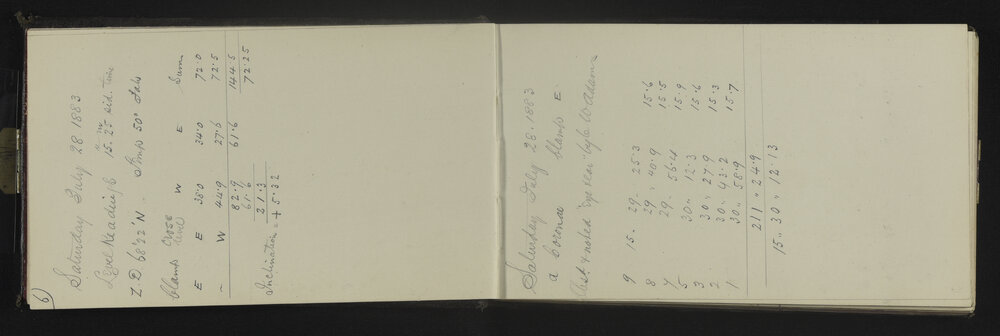 6)
Saturday July 28 1883
Level Readings 15h 25m sid. time
Z D 68° 22' N Temp 50° Fah
Clamp Cross level W E Sum
E E 38.0 34.0 72.0
" W 44.9 27.6 72.5
82.9 61.6 144.5
61.6 72.25
21.3
Inclination = + 5.32
Saturday July 28. 1883
α Coronæ Clamp E
Obst. & noted "Eye & ear" by C. W. Adams
9 15 .. 29 .. 25.3 15.6
8 29 .. 40.9 15.5
7 29 .. 56.4 15.9
5 30 .. 12.3 15.6
3 30 .. 27.9 15.3
2 30 .. 43.2 15.7
1 30 .. 58.9
211 .. 24.9
15 .. 30 .. 12.13